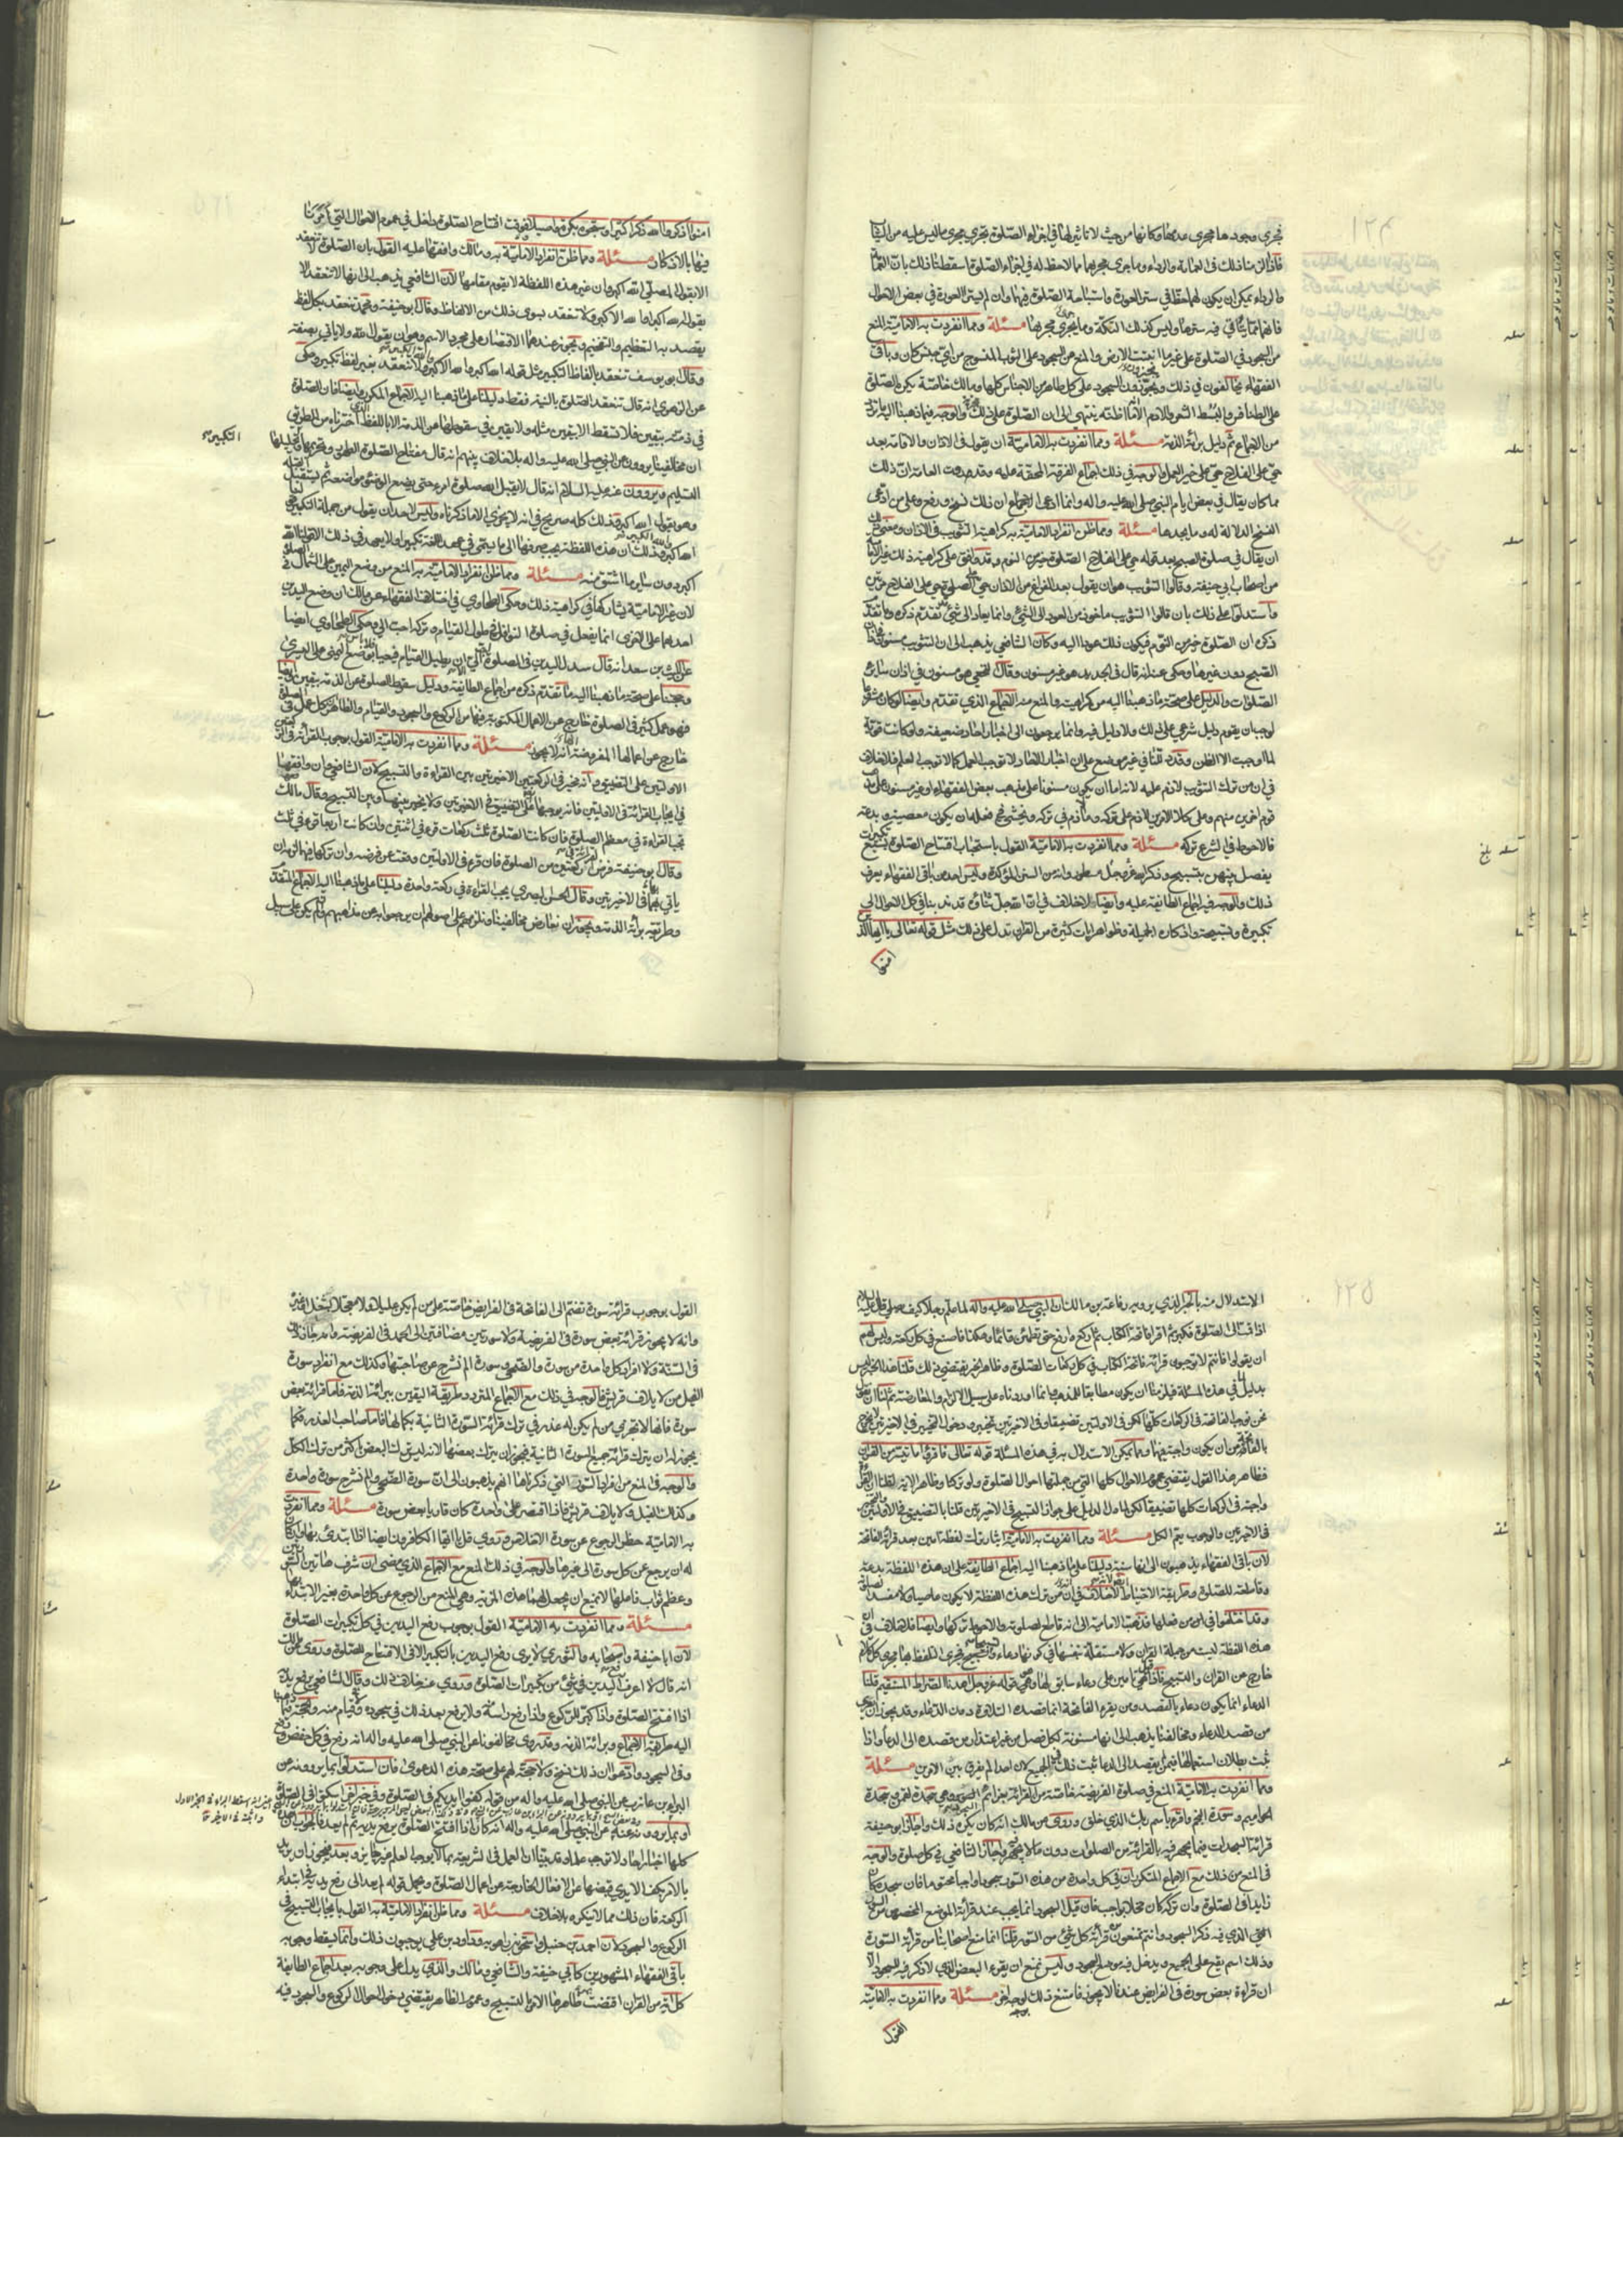 فجرى وجودها مجرى عدمها وكانها من حيث لا تاثير لها في اجزاء الصلوة تجري مجرى ما ليس عليه من الثياب
فاذا الزمنا ذلك في العمامة والرداء وما جرى مجراهما مما لا حظ له في اجزاء الصلوة اسقطنا ذلك بان العمامة
والرداء يمكن ان يكون لهما حظ في ستر العورة واستباحة الصلوة فيهما وان لم يستر العورة في بعض الاحوال
فانهما مما يتاتى فيه سترها وليس كذلك التكة وما يجري مجراها مسئلة ومما انفردت به الامامية المنع
من السجود في الصلوة على غير ما انبتت الارض والمنع من السجود على الثوب المنسوج من اي جنس كان وباقي
الفقهاء يخالفون في ذلك ويجوزون السجود على كل طاهر من الاجناس كلها ومالك خاصة يكره الصلوة
على الطنافس والبسط الشعر والادم
من الاجماع ثم دليل براءة الذمة مسئلة ومما انفردت به الامامية ان يقول في الاذان والاقامة بعد
حي على الفلاح حي على خير العمل والوجه في ذلك اجماع الفرقة المحقة عليه وقد روت العامة ان ذلك
مما كان يقال في بعض ايام النبي صلى الله عليه واله وانما ادعى الاجماع ان ذلك نسخ ورفع وعلى من ادعى
النسخ الدلالة له وما يجدها مسئلة ومما ظن انفراد الامامية به كراهية التثويب في الاذان ومعنى ذلك
ان يقال في صلوة الصبح بعد قوله حي على الفلاح الصلوة خير من النوم وقد وافق على كراهية ذلك غير الامامية
من اصحاب ابي حنيفة وقالوا التثويب هو ان يقول بعد الفراغ من الاذان حي على الصلوة حي على الفلاح مرتين
واستدلوا على ذلك بان قالوا التثويب ماخوذ من العود الى الشيء وانما يعاد الى شيء تقدم ذكره وما تقدم
ذكره ان الصلوة خير من النوم فيكون ذلك عودا اليه وكان الشافعي يذهب الى ان التثويب مسنون في اذان
الصبح دون غيرها وحكى عنه انه قال في الجديد هو غير مسنون وقال النخعي هو مسنون في اذان سائر
الصلوات والدليل على صحة ما ذهبنا اليه من كراهيته والمنع منه الاجماع الذي تقدم وايضا لو كان مشروعا
لوجب ان يقوم دليل شرعي على ذلك ولا دليل فيه وانما يرجعون الى اخبار احاد ضعيفة ولو كانت قوية
لما اوجبت الا الظن وقد دللنا في غير موضع على ان اخبار الاحاد لا توجب العمل كما لا توجب العلم فلا خلاف
في ان من ترك التثويب لا ذم عليه لانه اما ان يكون مسنونا على مذهب بعض الفقهاء او غير مسنون على
قوم اخرين منهم وعلى كلا الامرين لا ذم على تركه وما لا ذم في تركه ويخشى في فعله ان يكون معصية وبدعة
فالاحوط في الشرع تركه مسئلة ومما انفردت به الامامية القول باستحباب افتتاح الصلوة بسبع تكبيرات
يفصل بينهن بتسبيح وذكر الله عز وجل مسطور وانه من السنن المؤكدة وليس احد من باقي الفقهاء يعرف
ذلك والوجه فيه اجماع الطائفة عليه وايضا فلا خلاف في ان الله جل ثناؤه قد ندبنا في كل الاحوال الى
تكبيره وتسبيحه واذكاره الجميلة وظواهر ايات كثيرة من القران تدل على ذلك مثل قوله تعالى يا ايها الذين
امنوا
امنوا اذكروا الله ذكرا كثيرا وسبحوه بكرة واصيلا فوقت افتتاح الصلوة داخل في عموم الاحوال التي امرنا
فيها بالاذكار مسئلة ومما ظن انفراد الامامية به ومالك وافقها عليه القول بان الصلوة لا تنعقد
الا بقول المصلي الله اكبر وان غير هذه اللفظة لا يقوم مقامها لان الشافعي يذهب الى انها لا تنعقد الا
بقوله الله اكبر او الله الاكبر ولا تنعقد بسوى ذلك من الالفاظ وقال ابو حنيفة ومحمد تنعقد بكل لفظ
يقصد به التعظيم والتفخيم ويجوز عندهما الاقتصار على مجرد الاسم وهو ان يقول الله ولا ياتي بصفة
وقال ابو يوسف تنعقد بالفاظ التكبير مثل قوله الله اكبر والله الاكبر ولا تنعقد بغير لفظ تكبير وحكى
عن الزهري انه قال تنعقد الصلوة بالنية فقط دليلنا على ما ذهبنا اليه الاجماع المكرر وايضا فان الصلوة
في ذمته بيقين فلا تسقط الا بيقين مثله ولا يقين في سقوطها عن الذمة الا باللفظ
ان مخالفينا يروون عن النبي صلى الله عليه واله بلا خلاف بينهم انه قال مفتاح الصلوة الطهور وتحريمها التكبير وتحليلها
التسليم ويروون عنه عليه السلام انه قال لا يقبل الله صلوة امرئ حتى يضع الوضوء مواضعه ثم يستقبل القبلة
ويقول الله اكبر وذلك كله صريح في انه لا يجزي الا ما ذكرناه وليس لاحد ان يقول من جملة التكبير قولنا
اكبر دون سائر ما اشتق منه مسئلة ومما ظن انفراد الامامية به المنع من وضع اليمين على الشمال في الصلوة
لان غير الامامية يشاركها في كراهية ذلك وحكى الطحاوي في اختلاف الفقهاء عن مالك ان وضع اليدين
احدهما على الاخرى انما يفعل في صلوة النوافل في طول القيام وتركه احب الي وحكى الطحاوي ايضا
عن الليث بن سعد انه قال سدل اليدين في الصلوة احب الي الا ان يطيل القيام فيعيا فلا باس بوضع اليمنى على اليسرى
وحجتنا على صحة ما ذهبنا اليه ما تقدم ذكره من اجماع الطائفة ودليل سقوط الصلوة عن الذمة بيقين وايضا
فهو عمل كثير في الصلوة خارج عن الاعمال المكتوبة فيها من الركوع والسجود والقيام والظاهر ان كل عمل في الصلوة
خارج عن اعمالها المفروضة انه لا يجوز مسئلة ومما انفردت به الامامية القول بوجوب القراءة في الركعتين
الاولتين على التضييق وانه مخير في الركعتين الاخيرتين بين القراءة والتسبيح لان الشافعي وان وافقنا
في ايجاب القراءة في الاوليين فانه يوجبها على التضييق في الاخيرتين ولا يخير بينها وبين التسبيح وقال مالك
تجب القراءة في معظم الصلوة فان كانت الصلوة ثلث ركعات قرء في اثنتين وان كانت اربعا قرء في ثلث
وقال ابو حنيفة فرض القراءة في ركعتين من الصلوة فان قرء في الاولتين وقعت عن فرضه وان تركها فيهما لزمه ان
ياتي بها في الاخيرتين وقال الحسن البصري يجب القراءة في ركعة واحدة دليلنا على ما ذهبنا اليه الاجماع المتقدم
وطريقة براءة الذمة ويجوز ان نعارض مخالفينا ونلزمهم على اصولهم ان يرجعوا به عن مذاهبهم وان لم يكن على سبيل
التكبير
الاستدلال منه بالخبر الذي يرويه رفاعة بن مالك ان النبي صلى الله عليه واله لما علم رجلا كيف يصلي قال
اذا قمت الى الصلوة فكبر ثم اقرا فاتحة الكتاب ثم اركع وارفع حتى تطمئن قائما وهكذا فاصنع في كل ركعة وليس لهم
ان يقولوا فانتم لا توجبون قراءة فاتحة الكتاب في كل ركعات الصلوة وظاهر الخبر يقتضي ذلك قلنا هذا الخبر ليس
بدليل في هذه المسئلة فيلزمنا ان يكون مطابقا للمذهب وانما اوردناه على سبيل الالزام والمعارضة
نحن نوجب الفاتحة في الركعات كلها لكن في الاولتين تضييقا وفي الاخيرتين تخييرا ودخول التخيير في الاخيرتين لا يخرج
الفاتحة من ان يكون واجبة فيهما ومما يمكن الاستدلال به في هذه المسئلة قوله تعالى فاقرءوا ما تيسر من القران
فظاهر هذا القول يقتضي عموم الاحوال كلها التي من جملتها احوال الصلوة ولو تركنا وظاهر الاية لقلنا ان القراءة
واجبة في الركعات كلها تضييقا لكن لما دل الدليل على جواز التسبيح في الاخيرتين قلنا بالتضييق في الاولتين والتخيير
في الاخيرتين والوجوب يعم الكل مسئلة ومما انفردت به الامامية ايثار ترك لفظة امين بعد قراءة الفاتحة
لان باقي الفقهاء يذهبون الى انها سنة دليلنا على ما ذهبنا اليه اجماع الطائفة على ان هذه اللفظة بدعة
وقاطعة للصلوة وطريقة الاحتياط ايضا لانه لا خلاف في ان من ترك هذه اللفظة لا يكون عاصيا ولا مفسدا لصلوته
وقد اختلفوا في من فعلها فذهبت الامامية الى انه قاطع لصلوته والاحوط تركها وايضا فلا خلاف في ان
هذه اللفظة ليست من جملة القران ولا مستقلة بنفسها في كونها دعاء وتسبيحا فجرى التلفظ بها مجرى كل كلام
خارج عن القران والتسبيح فاذا قيل هي تامين على دعاء سابق لها وهو قوله عز وجل اهدنا الصراط المستقيم قلنا
الدعاء انما يكون دعاء بالقصد ومن يقرء الفاتحة انما قصده التلاوة دون الدعاء وقد يجوز ان يعرى
من قصد الدعاء ومخالفنا يذهب الى انها مسنونة لكل مصل من غير اعتبار من قصده الى الدعاء واذا
ثبت بطلان استعمالها فيمن لم يقصد الى الدعاء ثبت ذلك في الجميع لان احدا لم يفرق بين الامرين مسئلة
ومما انفردت به الامامية المنع في صلوة الفريضة خاصة من القراءة بعزائم السجود وهي سجدة لقمن وسجدة
الحواميم وسجدة النجم واقرا باسم ربك الذي خلق وروى عن مالك انه كان يكره ذلك واجاز ابو حنيفة
قراءة السجدات فيما يجهر فيه بالقراءة من الصلوات دون ما لا يجهر فيه واجاز الشافعي في كل صلوة والوجه
في المنع من ذلك مع الاجماع المتكرر ان في كل واحدة من هذه السور سجودا واجبا محتوما فان سجده كان
زايدا في الصلوة وان تركه كان مخلا بواجب فان قيل السجود انما يجب عند قراءة الموضع المخصوص من السورة
التي الذي فيه ذكر السجود وانتم تمنعون من قراءة كل شيء من السورة قلنا انما منع اصحابنا من قراءة السورة
وذلك اسم يقع على الجميع ويدخل فيه موضع السجود وليس يمتنع ان يقرء البعض الذي لا ذكر فيه للسجود الا
ان قراءة بعض سورة في الفرايض عندنا لا يجوز فامتنع ذلك لوجه اخر مسئلة ومما انفردت به الامامية
القول
القول بوجوب قراءة سورة تضم الى الفاتحة في الفرايض خاصة على من لم يكن عليلا ولا معجلا بشغل او غيره
وانه لا يجوز قراءة بعض سورة في الفريضة ولا سورتين مضافتين الى الحمد في الفريضة وان جاز ذلك
في السنة ولا افراد كل واحدة من سورة والضحى وسورة الم نشرح عن صاحبتها وكذلك مع انفراد سورة
الفيل من لايلاف قريش والوجه في ذلك مع الاجماع المتردد طريقة اليقين ببراءة الذمة فاما قراءة بعض
سورة فانها لا تجزي من لم يكن له عذر في ترك قراءة السورة الثانية بكمالها فاما صاحب العذر فكما
يجوز له ان يترك قراءة جميع السورة الثانية فيجوز ان يترك بعضها لانه ليس ترك البعض باكثر من ترك الكل
والوجه في المنع من افراد السور التي ذكرناها انهم يذهبون الى ان سورة الضحى والم نشرح سورة واحدة
وكذلك الفيل ولايلاف قريش فاذا اقتصر على واحدة كان قارئا بعض سورة مسئلة ومما انفردت
به الامامية حظر الرجوع عن سورة الاخلاص وروي قل يا ايها الكافرون ايضا اذا ابتدئ بها وان كان
له ان يرجع عن كل سورة الى غيرها والوجه في ذلك المنع مع الاجماع الذي مضى ان شرف هاتين السورتين
وعظم ثواب فاعلها لا يمتنع ان يجعل لهما هذه المزية وهي المنع من الرجوع عن كل واحدة بعد الابتداء بها
مسئلة ومما انفردت به الامامية القول بوجوب رفع اليدين في كل تكبيرات الصلوة
لان ابا حنيفة واصحابه والثوري لا يرى رفع اليدين بالتكبير الا في الافتتاح للصلوة وروى عن مالك
انه قال لا اعرف رفع اليدين في شيء من تكبيرات الصلوة وروي عنه خلاف ذلك وقال الشافعي يرفع يديه
اذا افتتح الصلوة واذا كبر للركوع واذا رفع راسه ولا يرفع بعد ذلك في سجوده ولا قيام منه والحجة فيما ذهبنا
اليه طريقة الاجماع وبراءة الذمة وقد روى مخالفونا عن النبي صلى الله عليه واله انه رفع في كل خفض ورفع
وفي السجود وادعوا ان ذلك نسخ ولا حجة لهم على صحة هذه الدعوى فان استدلوا بما يروونه عن
البراء بن عازب عن النبي صلى الله عليه واله من قوله كفوا ايديكم في الصلوة وفي خبر اخر اسكنوا في الصلوة
او بما يروونه عنه عن النبي صلى الله عليه واله انه كان اذا افتتح الصلوة يرفع يديه ثم لم يعد فالجواب ان هذه
كلها اخبار احاد ولا توجب علما وقد بينا ان العمل في الشريعة بما لا يوجب العلم غير جائز وبعد فيجوز ان يريد
بالامر بكف الايدي قبضها عن الافعال الخارجة عن اعمال الصلوة ويحمل قوله لم يعد الى رفع يديه في ابتداء
الركعة فان ذلك مما لا يتكرر بلا خلاف مسئلة ومما ظن انفراد الامامية به القول بايجاب التسبيح في
الركوع والسجود لان احمد بن حنبل واسحق بن راهويه وداود بن علي يوجبون ذلك وانما يسقط وجوبه
باقي الفقهاء المشهورين كابي حنيفة والشافعي ومالك والذي يدل على وجوبه بعد اجماع الطائفة
كل اية من القران اقتضت بظاهرها الامر بالتسبيح وعموم الظاهر يقتضي دخول احوال الركوع والسجود فيه